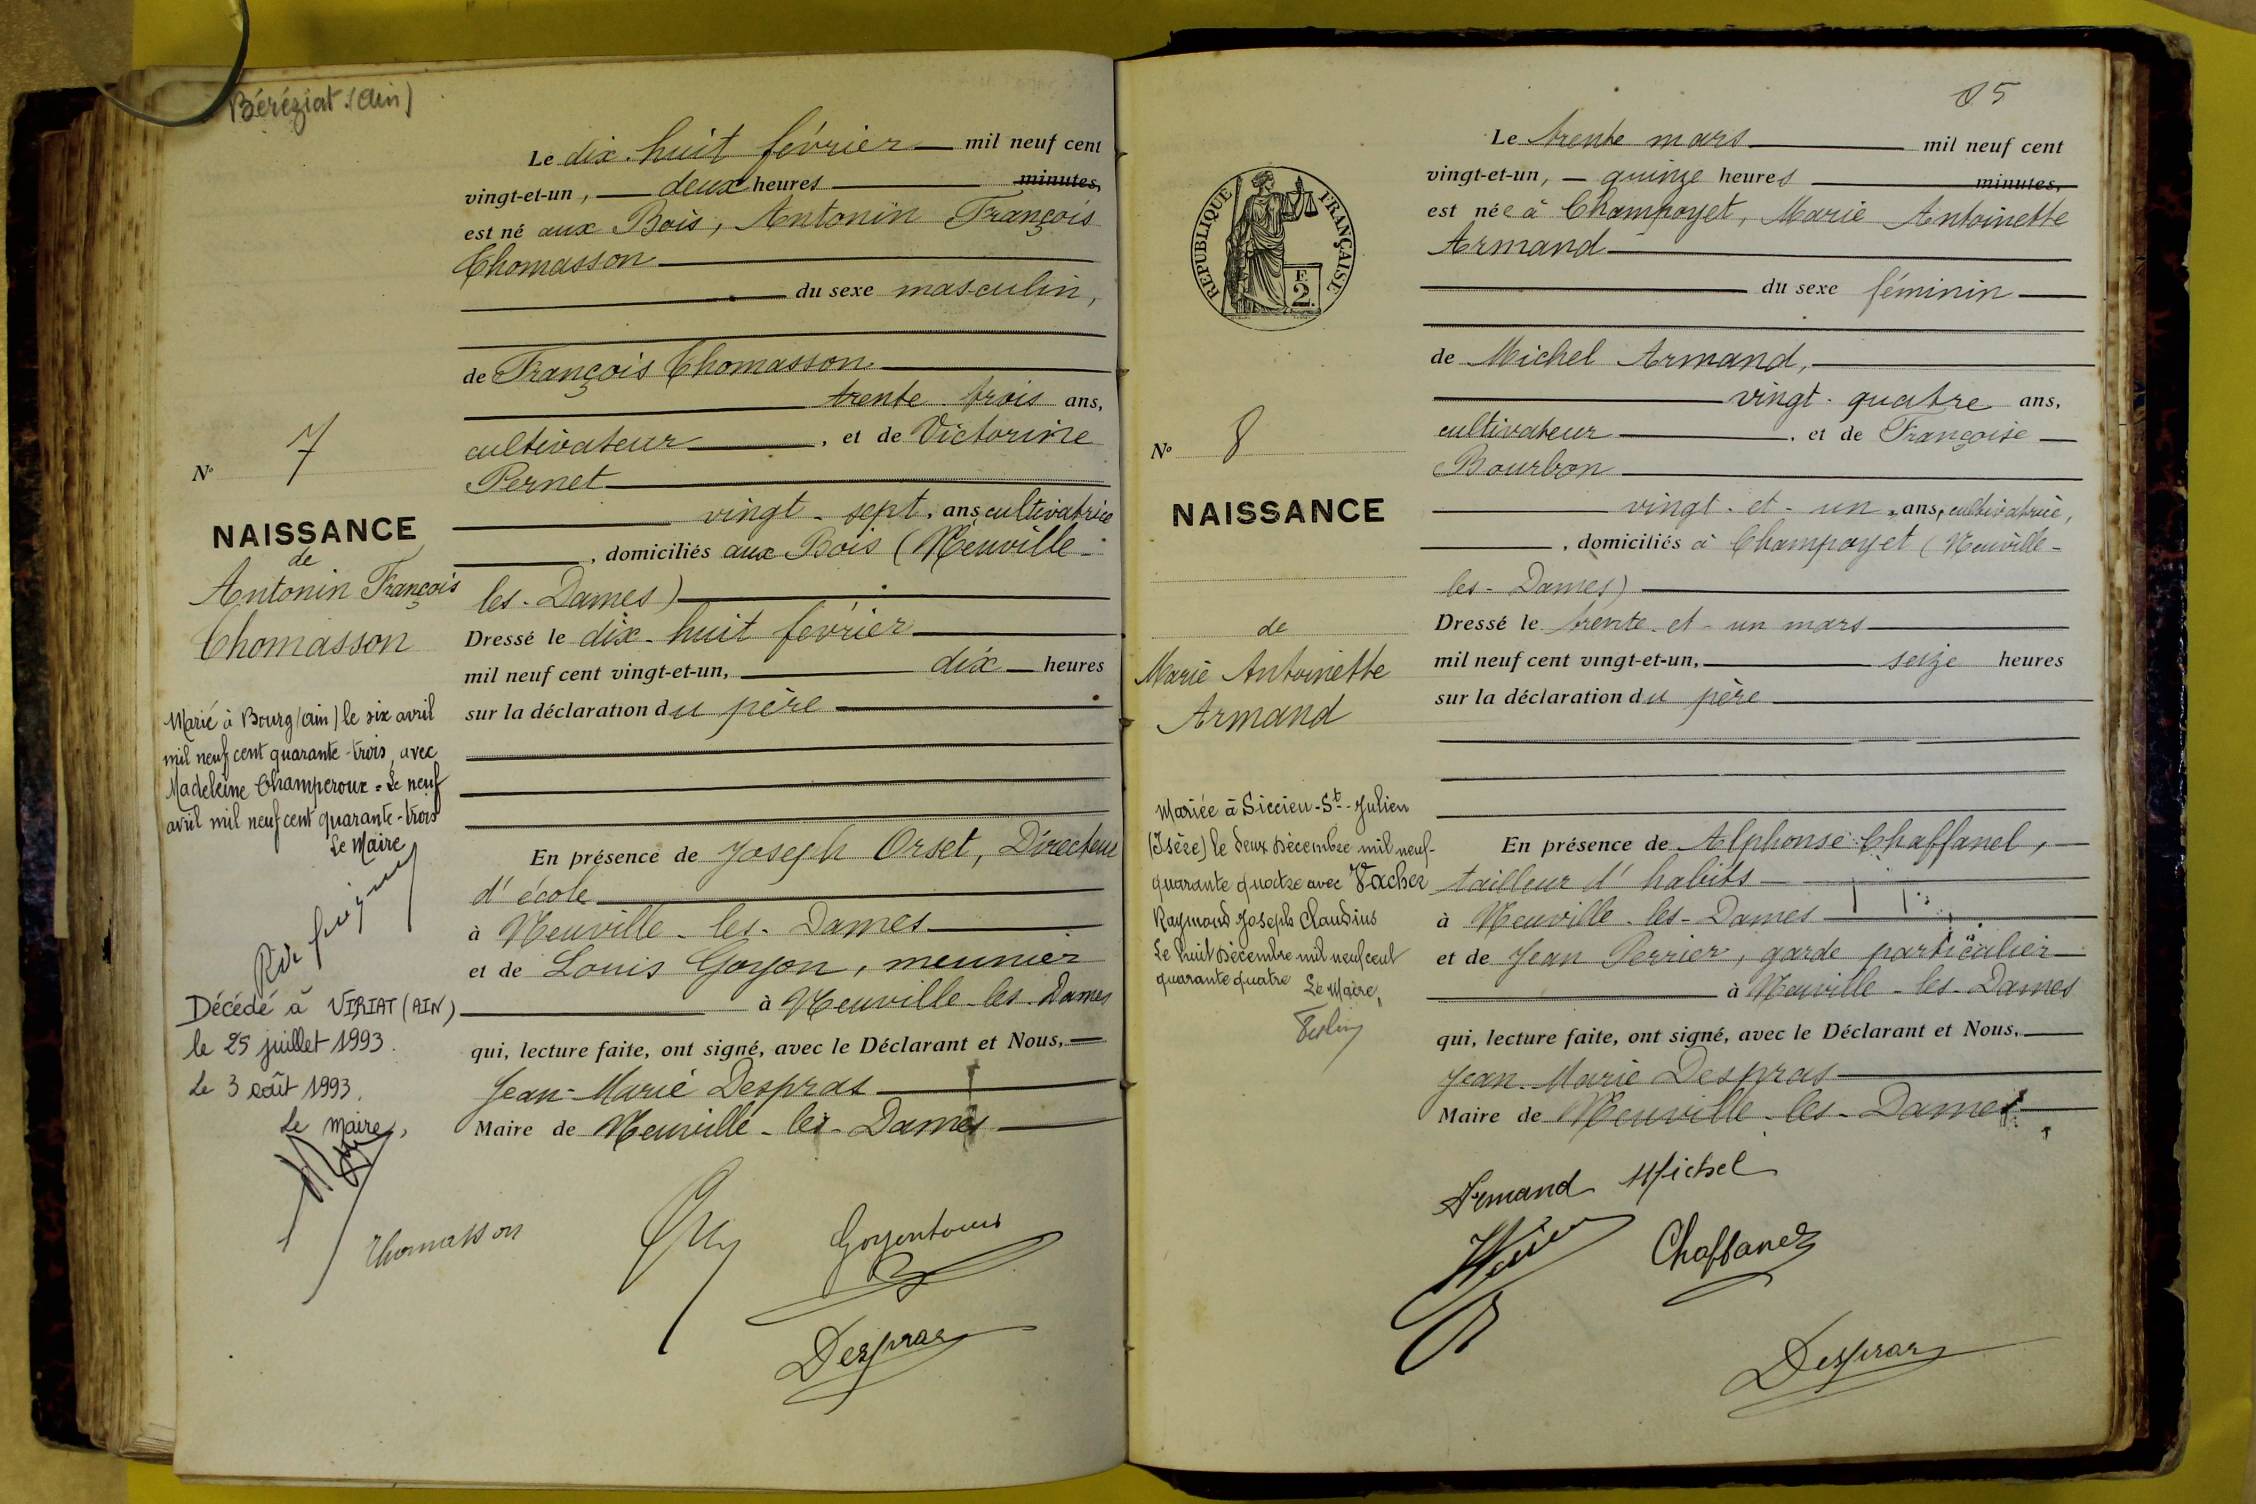 Béréziat (Ain)
Le dix-huit février mil neuf cent
vingt-et-un, deux heures minutes,
est né aux Bois, Antonin François
Thomasson
du sexe masculin,
de François Thomasson
trente-trois ans,
cultivateur, et de Victorine
Pernet
vingt-sept, ans, cultivatrice
, domiciliés aux Bois (Neuville-
les-Dames)
Dressé le dix-huit février
mil neuf cent vingt-et-un, dix heures
sur la déclaration du père
En présence de Joseph Orset, Directeur
d'école
à Neuville-les-Dames
et de Louis Goyon, meunier
à Neuville-les-Dames
qui, lecture faite, ont signé, avec le Déclarant et Nous,
Jean-Marie Despras
Maire de Neuville-les-Dames
Thomasson
Despras
N° 7
NAISSANCE
de
Antonin François
Thomasson
Marié à Bourg (Ain) le six avril
mil neuf cent quarante-trois, avec
Madeleine Champeroux. Le neuf
avril mil neuf cent quarante-trois
Le Maire
Décédé à VIRIAT (AIN)
le 25 juillet 1993.
Le 3 août 1993.
Le Maire,
85
Le trente mars mil neuf cent
vingt-et-un, quinze heures minutes,
est née à Champoyet, Marie Antoinette
Armand
du sexe féminin
de Michel Armand,
vingt-quatre ans,
cultivateur, et de Françoise
Bourbon
vingt-et-un, ans, cultivatrice,
, domiciliés à Champoyet (Neuville-
les-Dames)
Dressé le trente-et-un mars
mil neuf cent vingt-et-un, seize heures
sur la déclaration du père
En présence de Alphonse Chaffanel,
tailleur d'habits
à Neuville-les-Dames
et de Jean Perrier, garde particulier
à Neuville-les-Dames
qui, lecture faite, ont signé, avec le Déclarant et Nous,
Jean-Marie Despras
Maire de Neuville-les-Dames
Armand Michel
Chaffanel
Despras
REPUBLIQUE FRANÇAISE
E
2.
N° 8
NAISSANCE
de
Marie Antoinette
Armand
Mariée à Siccieu-St-Julien
(Isère) le deux Décembre mil neuf-
quarante quatre avec Vacher
Raymond Joseph Claudius
Le huit Décembre mil neuf cent
quarante quatre Le Maire,